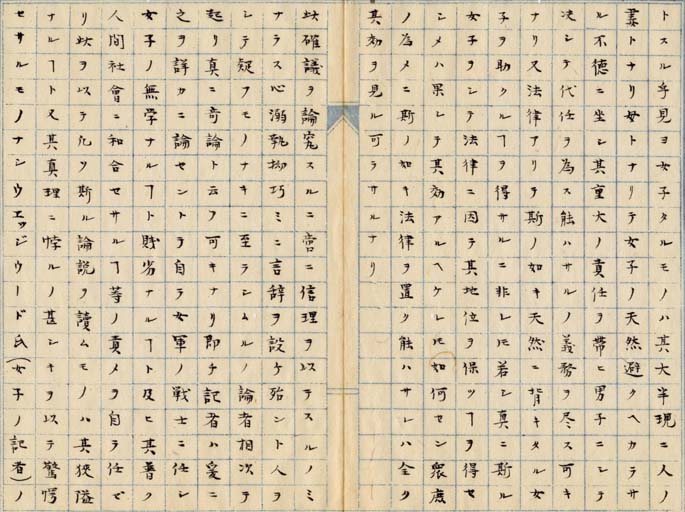 トスル乎見ヨ女子タルモノハ其大半現ニ人ノ
妻トナリ母トナリテ女子ノ天然避クヘカラサ
ル不徳ニ坐シ其重大ノ責任ヲ帯ヒ男子ニシテ
決シテ代任ヲ為ス能ハサルノ義務ヲ尽ス可キ
ナリ又法律アリテ斯ノ如キ天然ニ背キタル女
子ヲ助クルヿヲ得サルニ非レ𪜈若シ真ニ斯ル
女子ヲシテ法律ニ因テ其地位ヲ保ツヿヲ得セ
シメハ果シテ其効アルヘケレ𪜈如何セン衆庶
ノ為メニ斯ノ如キ法律ヲ置ク能ハサレハ全ク
其効ヲ見ル可ラサルナリ
此確議ヲ論究スルニ啻ニ信理ヲ以テスルノミ
ナラス心溺執拗巧ミニ言辞ヲ設ケ殆ント人ヲ
シテ疑フモノナキニ至ラシムルノ論者相次テ
起リ真ニ奇論ト云フ可キナリ即チ記者ハ爰ニ
之ヲ詳カニ論セントヲ自ラ女軍ノ戦士ニ任シ
女子ノ無学ナルヿト賎劣ナルヿト及ヒ其普ク
人間社會ニ和合セサルヿ等ノ責メヲ自ラ任セ
リ此ヲ以テ凡ソ斯ル論説ヲ讀ムモノハ其狹隘
ナルヿト又其真理ニ悖ルノ甚シキヲ以テ驚愕
セサルモノナシウエッジウード氏(女子ノ記者)ノ